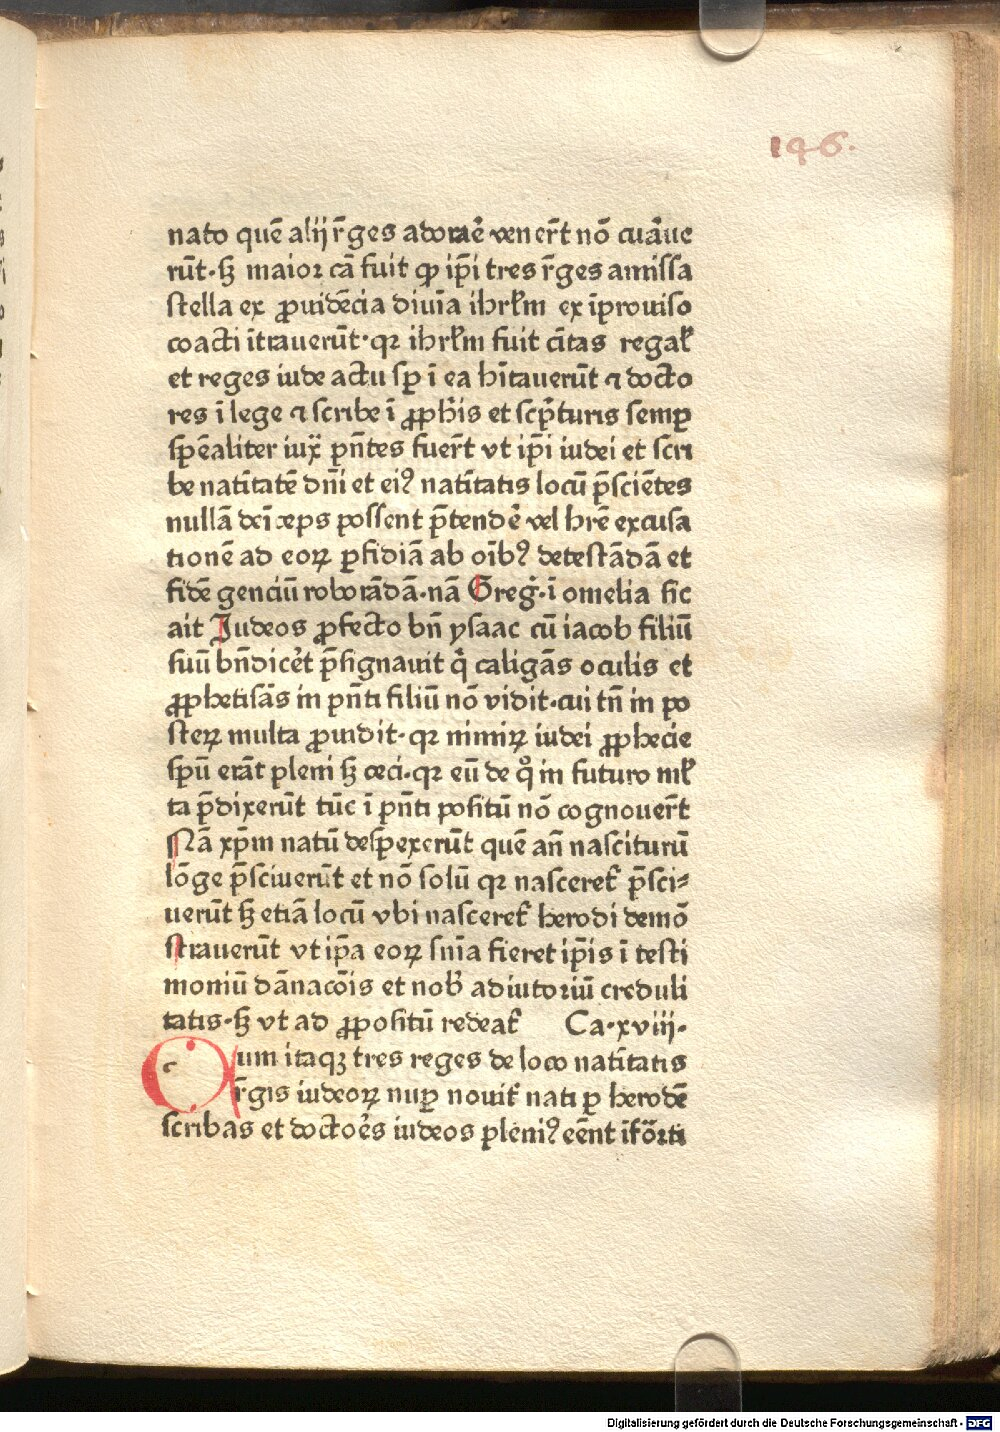 146.
nato quē alij r̄ges adorar̄e vener̄t nō curāue
rūt·sꝫ maior cā fuit ꝙ ip̄i tres r̄ges amissa
stella ex ꝓuidēcia diuīa ihrl̄m ex īprouiso
coacti ītrauerūt·qꝛ ihrl̄m fuit ciītas regal̓
et reges iude actu sꝑ ī ea hītauerūt ⁊ docto
res ī lege ⁊ scribe ī ꝓph̄is et scp̄turis semꝑ
sp̄ealiter iuẍ pn̄tes fuer̄t vt ip̄i iudei et scri
be natītatē dn̄i et eiꝰ natītatis locū p̄sciētes
nullā deīceps possent p̄tendē vel hr̄e excusa
tionē ad eoꝝ ꝑfidiā ab oībꝰ detestādā et
fidē genciū roborādā·nā Greg̓·ī omelia sic
ait Judeos ꝓfecto bn̄ ysaac cū iacob filiū
suū bn̄dicēt p̄signauit q̄ caligās oculis et
ꝓphetisās in pn̄ti filiū nō vidit·cui tn̄ in po
steꝝ multa ꝓuidit·qꝛ nimiꝝ iudei ꝓphecie
sp̄ū erāt pleni sꝫ ceci·qꝛ eū de qͦ in futuro ml̓
ta p̄dixerūt tūc ī pn̄ti positū nō cognouer̄t
Nā xp̄m natū desp̄exerūt quē an̄ nasciturū
lōge p̄sciuerūt et nō solū qꝛ nasceret̓ p̄sci⸗
uerūt sꝫ etiā locū vbi nasceret̓ herodi demō
strauerūt vt ip̄a eoꝝ sn̄ia fieret ip̄is ī testi
moniū dānacōis et nob̓ adiutoriū creduli
tatis·sꝫ vt ad ꝓpositū redeat̓ Ca·xviij·
Cum itaqꝫ tres reges de loco natītatis
r̄gis iudeoꝝ nuꝑ nouit̓ nati ꝑ herodē
scribas et doctoēs iudeos pleniꝰ eēnt īfōrti
Digitalisierung gefördert durch die Deutsche Forschungsgemeinschaft - DFG